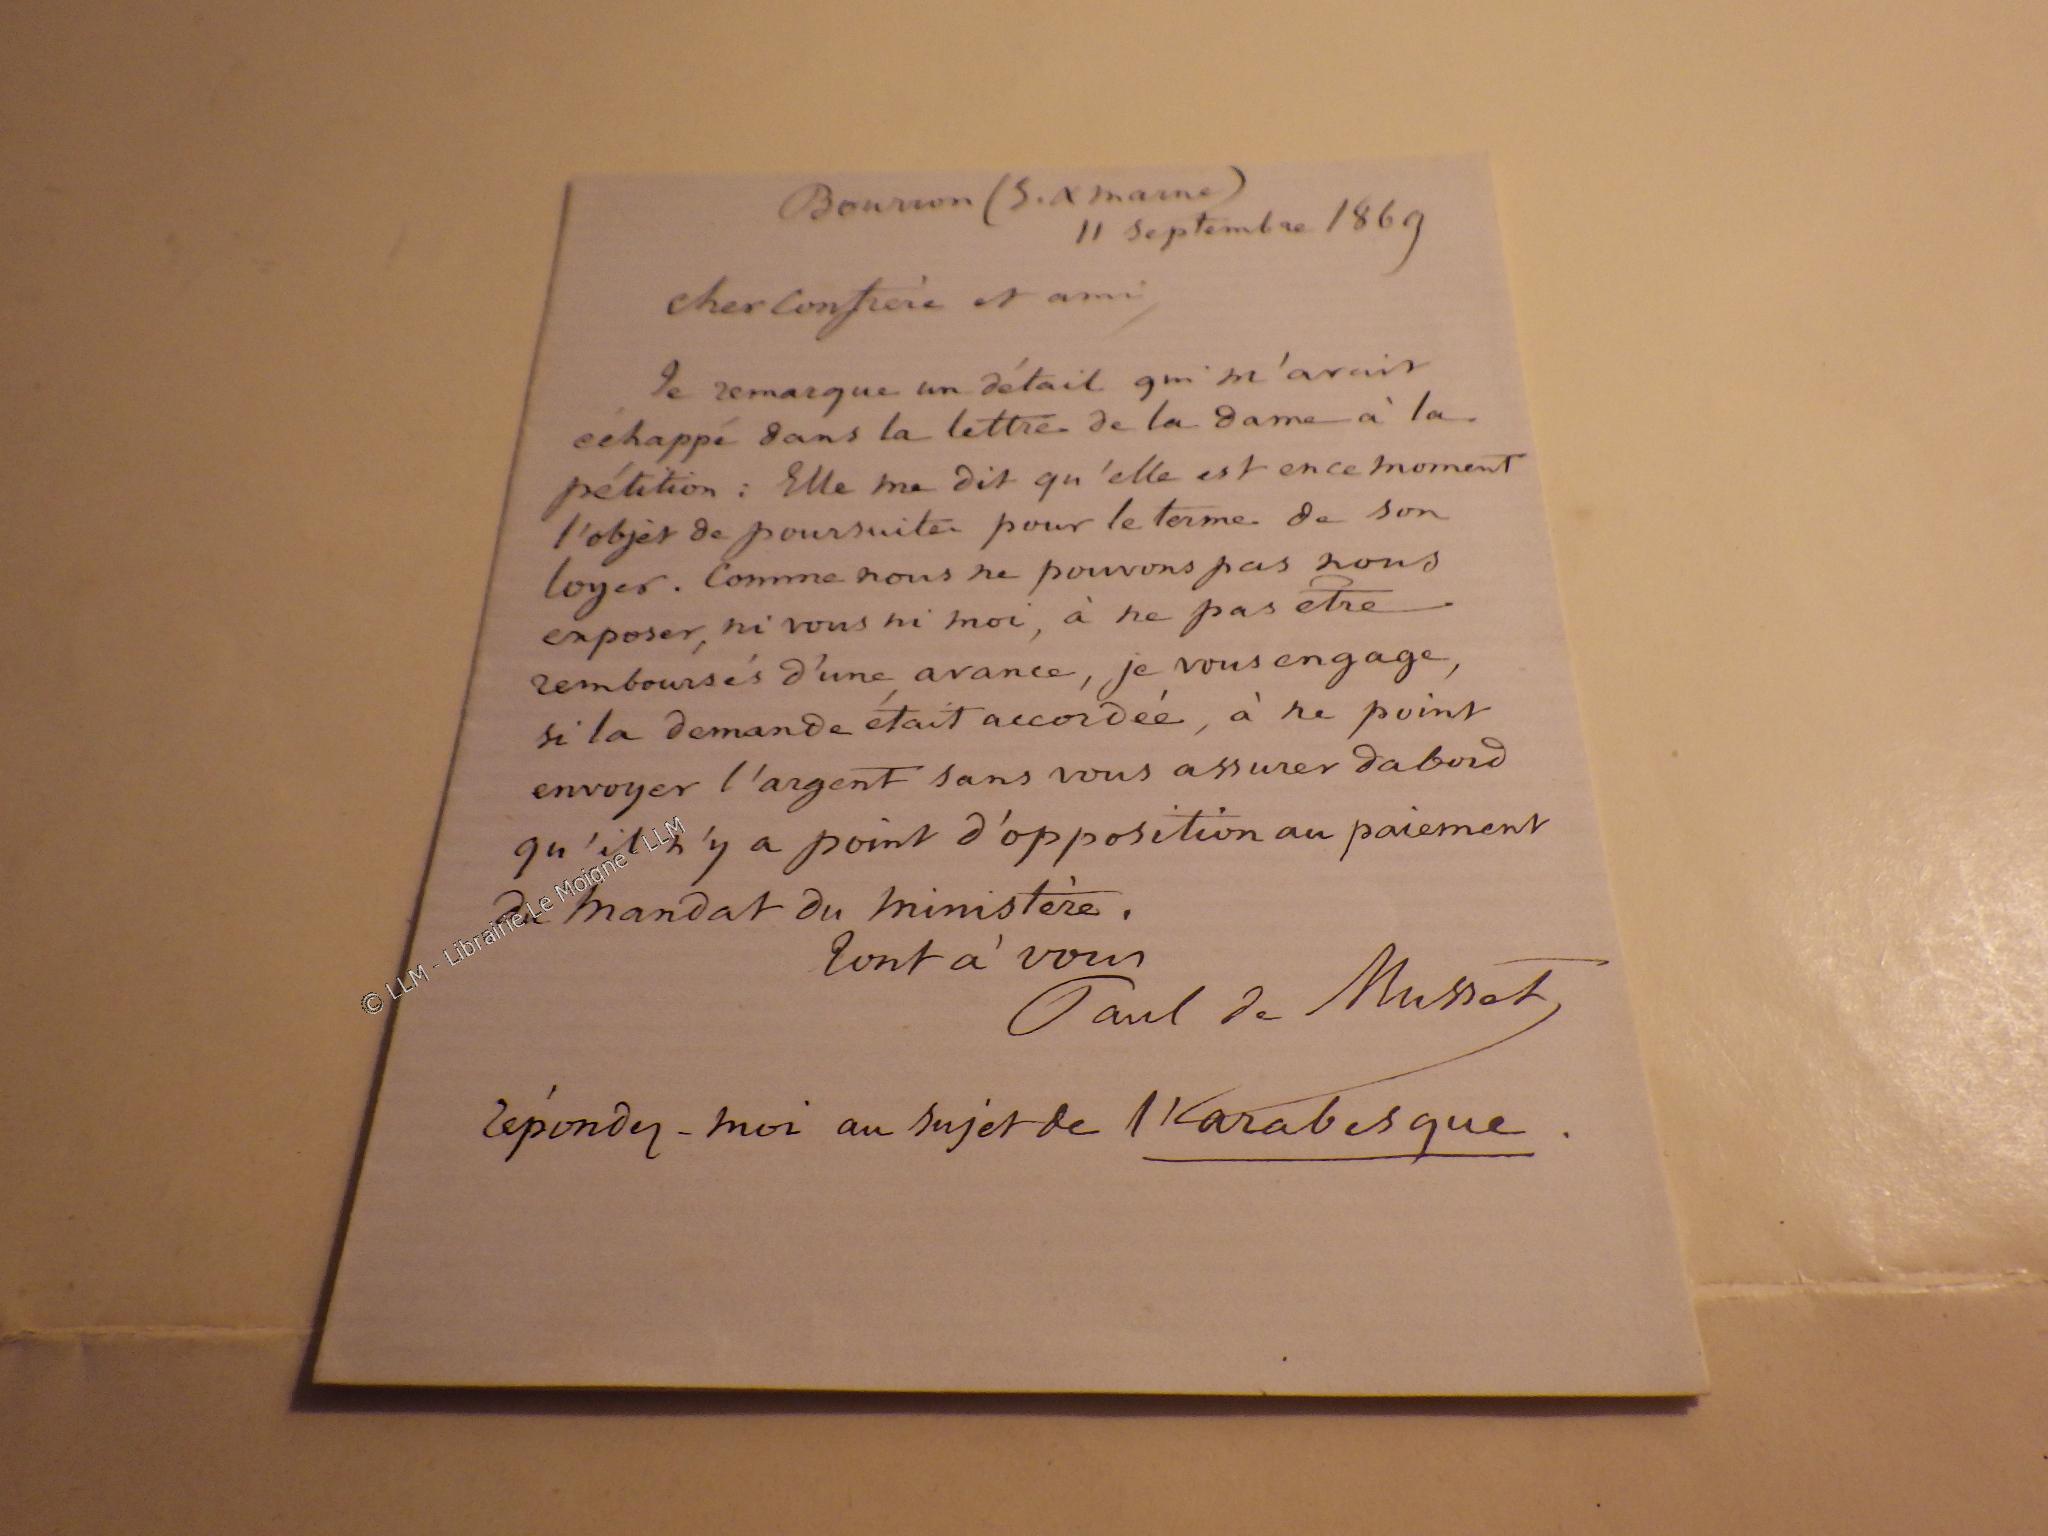 Bourron (S. & marne)
11 septembre 1869
cher confrère et ami,
Je remarque un détail qui m'avait
échappé dans la lettre de la dame à la
pétition : Elle me dit qu'elle est en ce moment
l'objet de poursuite pour le terme de son
loyer. Comme nous ne pouvons pas nous
exposer, ni vous ni moi, à ne pas être
remboursés d'une avance, je vous engage,
si la demande était accordée, à ne point
envoyer l'argent sans vous assurer dabord
qu'il n'y a point d'opposition au paiement
du mandat du ministère.
Tout à vous
Paul de Musset
répondez-moi au sujet de l'arabesque.
© LLM - Librairie Le Moigne - LLM